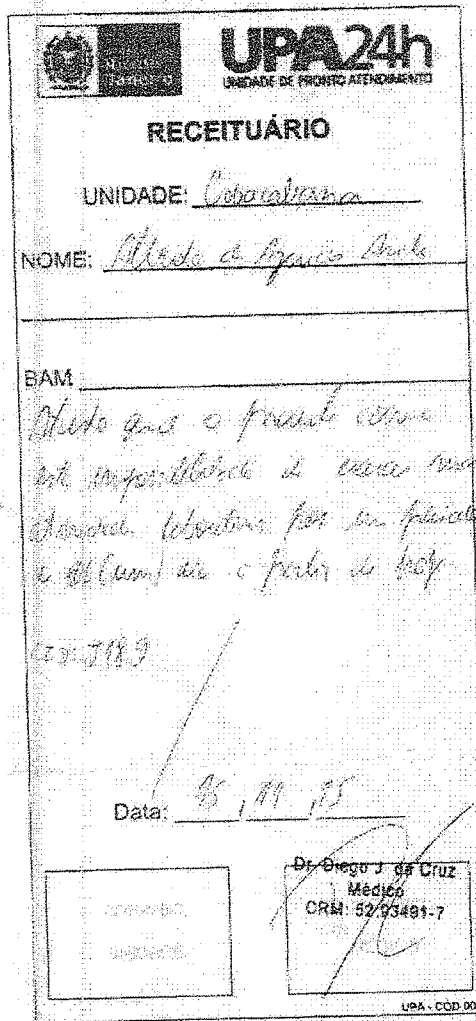 UPA24h
UNIDADE DE PRONTO ATENDIMENTO
RECEITUÁRIO
UNIDADE: Copacabana
NOME: Alfredo de
BAM
Atesto que o paciente acima
está impossibilitado de exercer
laborativa por um período
de 01 (um) dia a partir de hoje
CID: J18.9
Data: /11/15
Dr. Diego J. da Cruz
Médico
CRM: 52.93491-7
UPA - CÓD 00